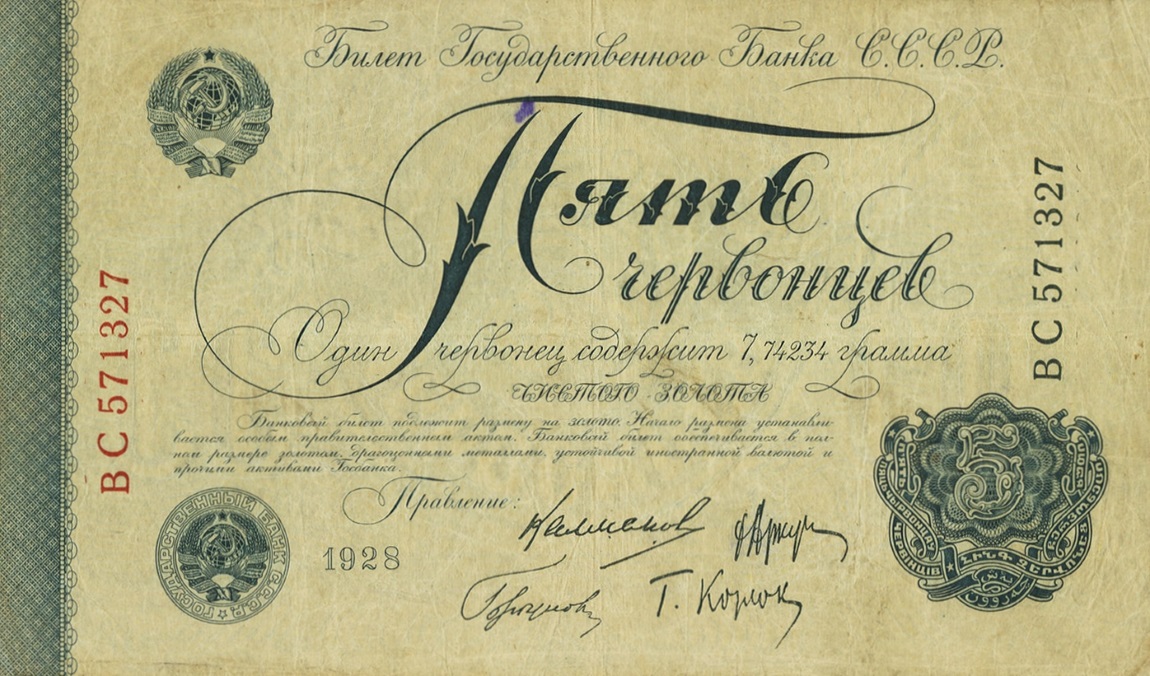 Билет Государственного Банка С.С.С.Р.
Пять
червонцев
Один червонец содержит 7,74234 грамма
чистого золота
Банковый билет подлежит размену на золото. Начало размена устанавли-
вается особым правительственным актом. Банковый билет обеспечивается в пол-
ном размере золотом, драгоценными металлами, устойчивой иностранной валютой и
прочими активами Госбанка.
Правление:
1928
ВС 571327
ВС 571327
ГОСУДАРСТВЕННЫЙ БАНК С.С.С.Р.
Г. Корлок
5
ՀԻՆԳ ՉԵՐՎՈՆԵՑ